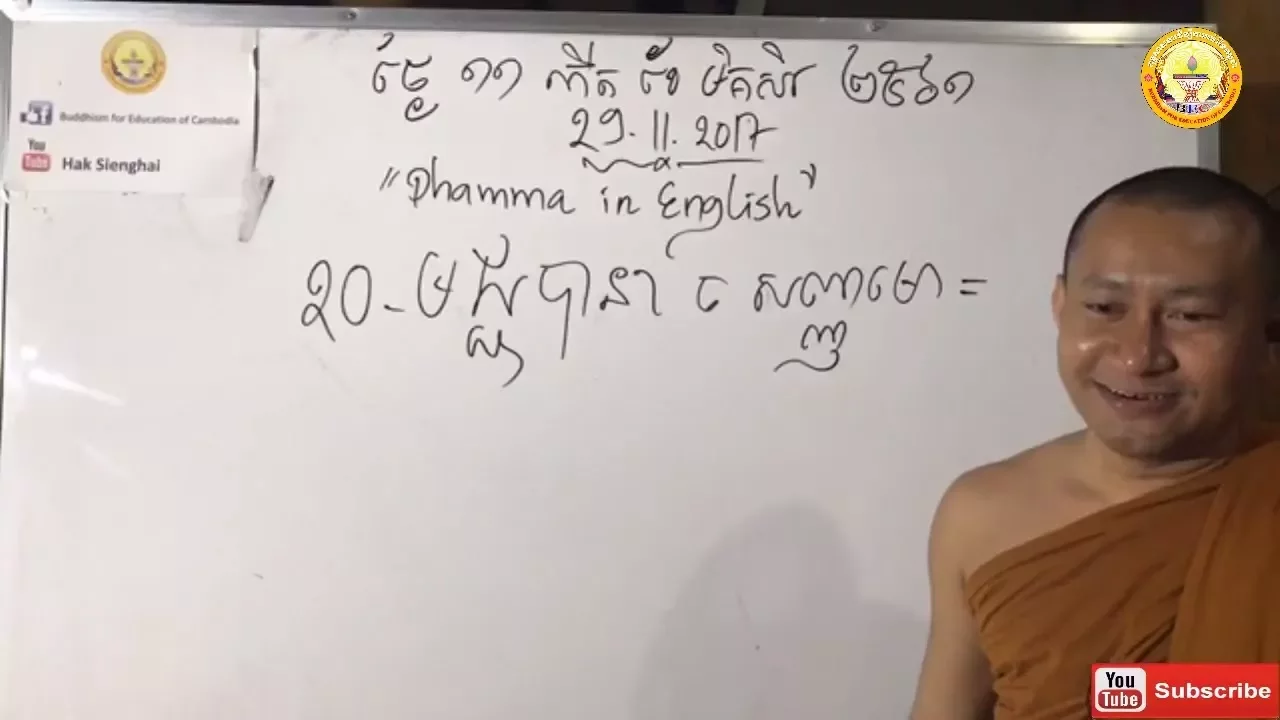 Buddhism for Education of Cambodia
You Tube Hak Sienghai
ថ្ងៃ ១១ កើត ខែ មិគសិរ ២៥៦១
29.11.2017
"Dhamma in English"
20-មជ្ជបានា ច សញ្ញមោ =
You Tube Subscribe